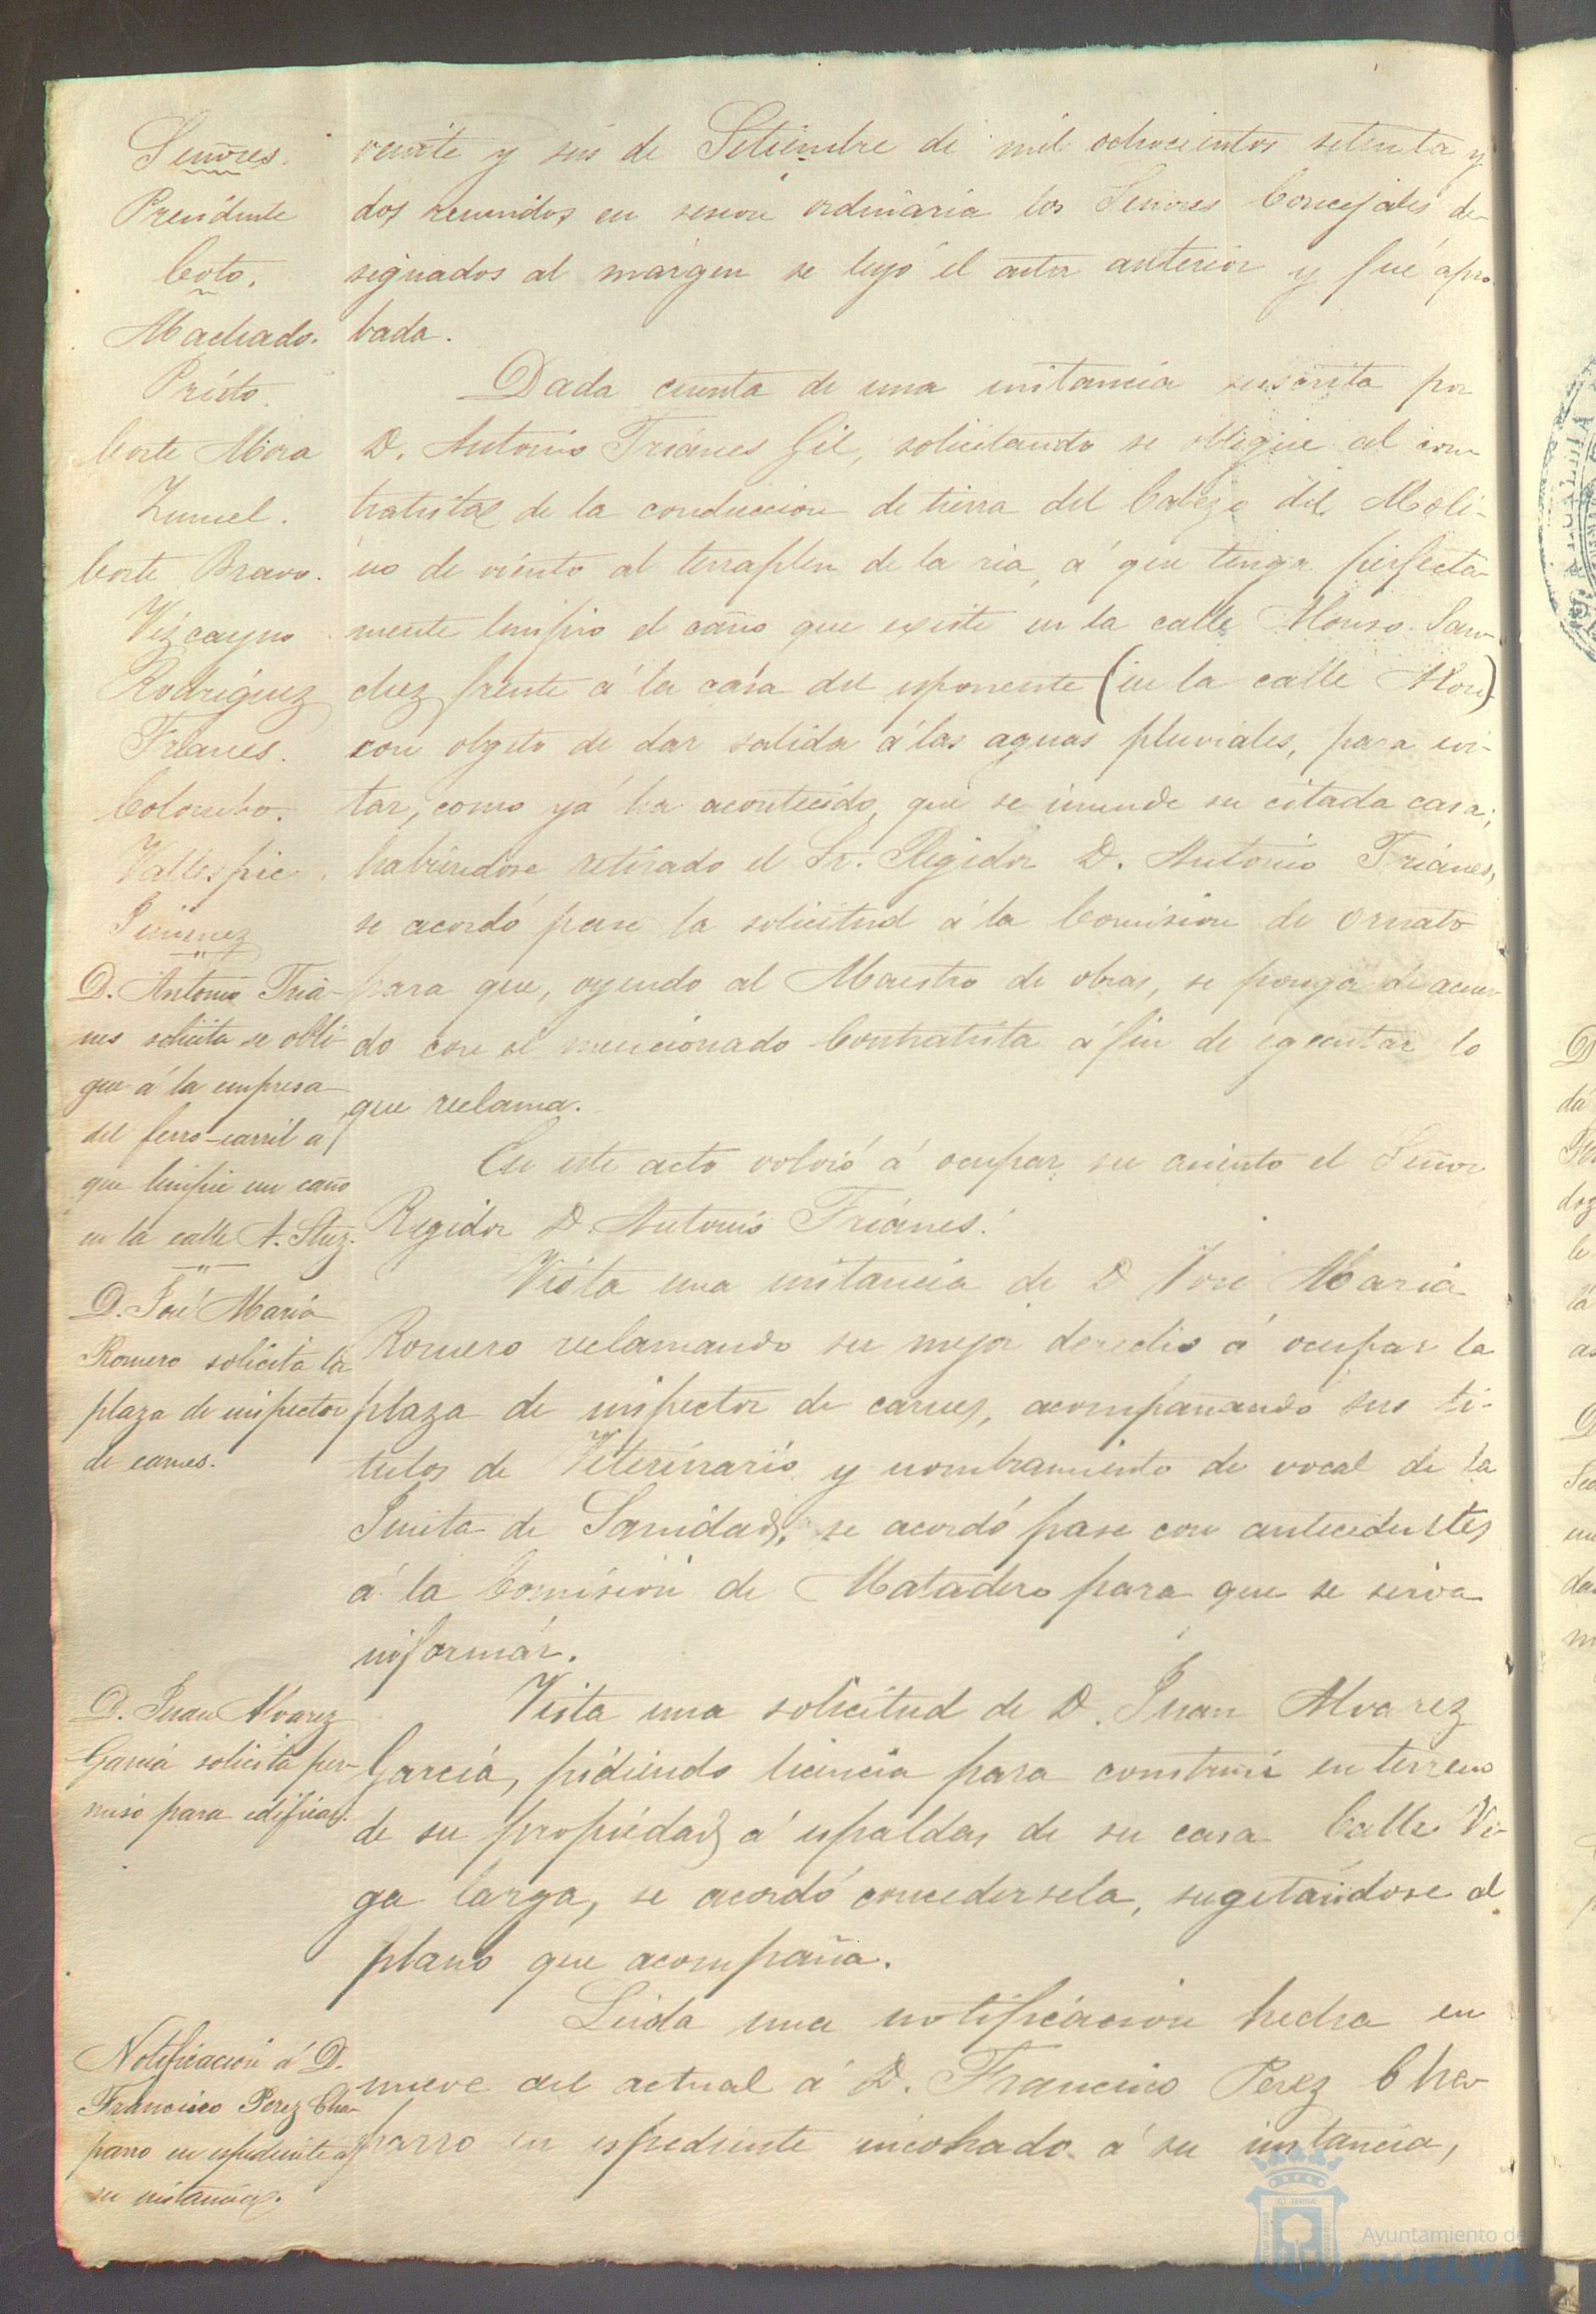 Señores.
Presidente
Coto.
Machado.
Prieto.
Corte Mora
Zumel.
Corte Bravo.
Vizcayno
Rodriguez
Trianes.
Colombo.
Vallespic.
Jimenez
D. Antonio Tria-
nes solicita se obli-
gue á la empresa
del ferro-carril a
que limpie un caño
en la calle A. Shez.
D. José María
Romero solicita la
plaza de inspector
de carnes.
D. Juan Alvarez
Garcia solicita per-
miso para edificar.
Notificacion á D.
Francisco Perez Cha-
parro en espediente a
su instancia.
veinte y seis de Setiembre de mil ochocientos setenta y
dos reunidos en sesion ordinaria los Señores Concejales de-
signados al márgen se leyó el acta anterior y fué apro
bada.
Dada cuenta de una instancia suscrita por
D. Antonio Triánes Gil, solicitando se obligue al con
tratista de la conduccion de tierra del Cabezo del Moli-
no de viento al terraplen de la ria, á que tenga perfecta-
mente limpio el caño que existe en la calle Alonso San-
chez frente á la casa del esponente (en la calle )
con objeto de dar salida á las aguas pluviales, para evi-
tar, como yá ha acontecido, que se inunde su citada casa;
habiendose retirado el Sr. Regidor D. Antonio Triánes,
se acordó pase la solicitud á la Comision de Ornato
para que, oyendo al Maestro de obras, se ponga de acuer
do con el mencionado Contratista á fin de egecutar lo
que reclama.
En este acto volvió á ocupar su asiento el Señor
Regidor D. Antonio Triánes.
Vista una instancia de D. José Maria
Romero reclamando su mejor derecho á ocupar la
plaza de inspector de carnes, acompañando sus ti-
tulos de Veterinario y nombramiento de vocal de la
Junta de Sanidad, se acordó pase con antecedentes
á la Comision de Matadero para que se sirva
informár.
Vista una solicitud de D. Juan Alvarez
Garcia, pidiendo licencia para construir en terreno
de su propiedad á espaldas de su casa Calle Ve-
ga larga, se acordó concedersela, sugetándose al
plano que acompaña.
Leida una notificacion hecha en
nueve del actual á D. Francisco Perez Cha-
parro en espediente incohado á su instancia,
Ayuntamiento de
HUELVA